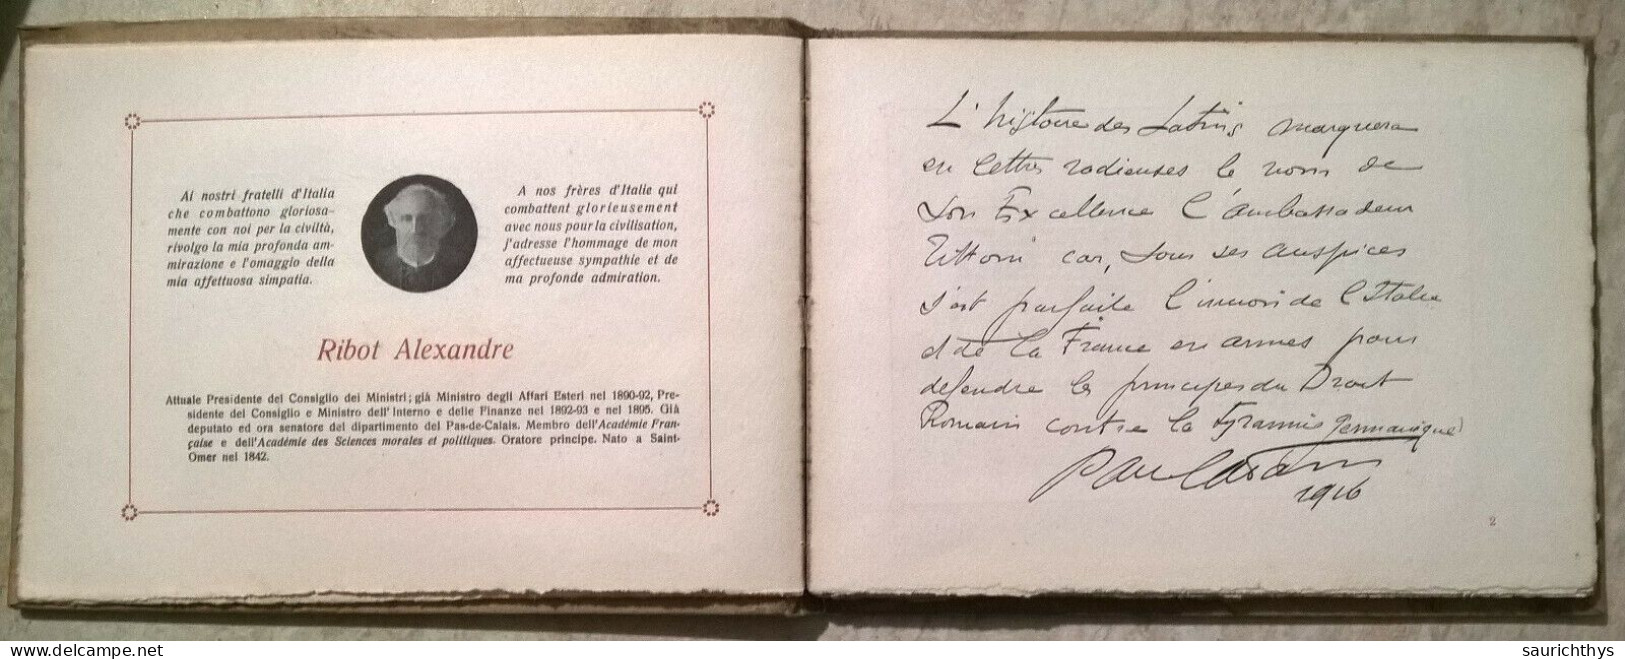 Ai nostri fratelli d'Italia
che combattono gloriosa-
mente con noi per la civiltà,
rivolgo la mia profonda am-
mirazione e l'omaggio della
mia affettuosa simpatia.
A nos frères d'Italie qui
combattent glorieusement
avec nous pour la civilisation,
j'adresse l'hommage de mon
affectueuse sympathie et de
ma profonde admiration.
Ribot Alexandre
Attuale Presidente del Consiglio dei Ministri; già Ministro degli Affari Esteri nel 1890-92, Pre-
sidente del Consiglio e Ministro dell'Interno e delle Finanze nel 1892-93 e nel 1895. Già
deputato ed ora senatore del dipartimento del Pas-de-Calais. Membro dell'Académie Fran-
çaise e dell'Académie des Sciences morales et politiques. Oratore principe. Nato a Saint-
Omer nel 1842.
L'histoire des Latins marquera
en lettres radieuses le nom de
Son Excellence l'Ambassadeur
Tittoni car, sous ses auspices
s'est parfaite l'union de l'Italie
et de la France en armes pour
defendre les principes du Droit
Romain contre la Tyrannie germanique
1916
2
delcampe.net
saurichthys